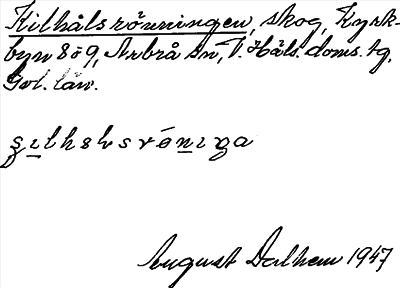 Kilhålsrönningen, skog, Kyrk-
byn 8 o 9, Arbrå sn, V. Häls. doms. tg,
Gvl. län.
August Dalhem 1947